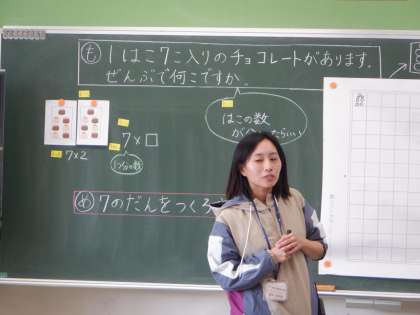 も 1はこ7こ入りのチョコレートがあります。
ぜんぶで何こですか。
はこの数
が
たらいい
7×2
7×□
1つ分の数
め 7のだんをつくろ